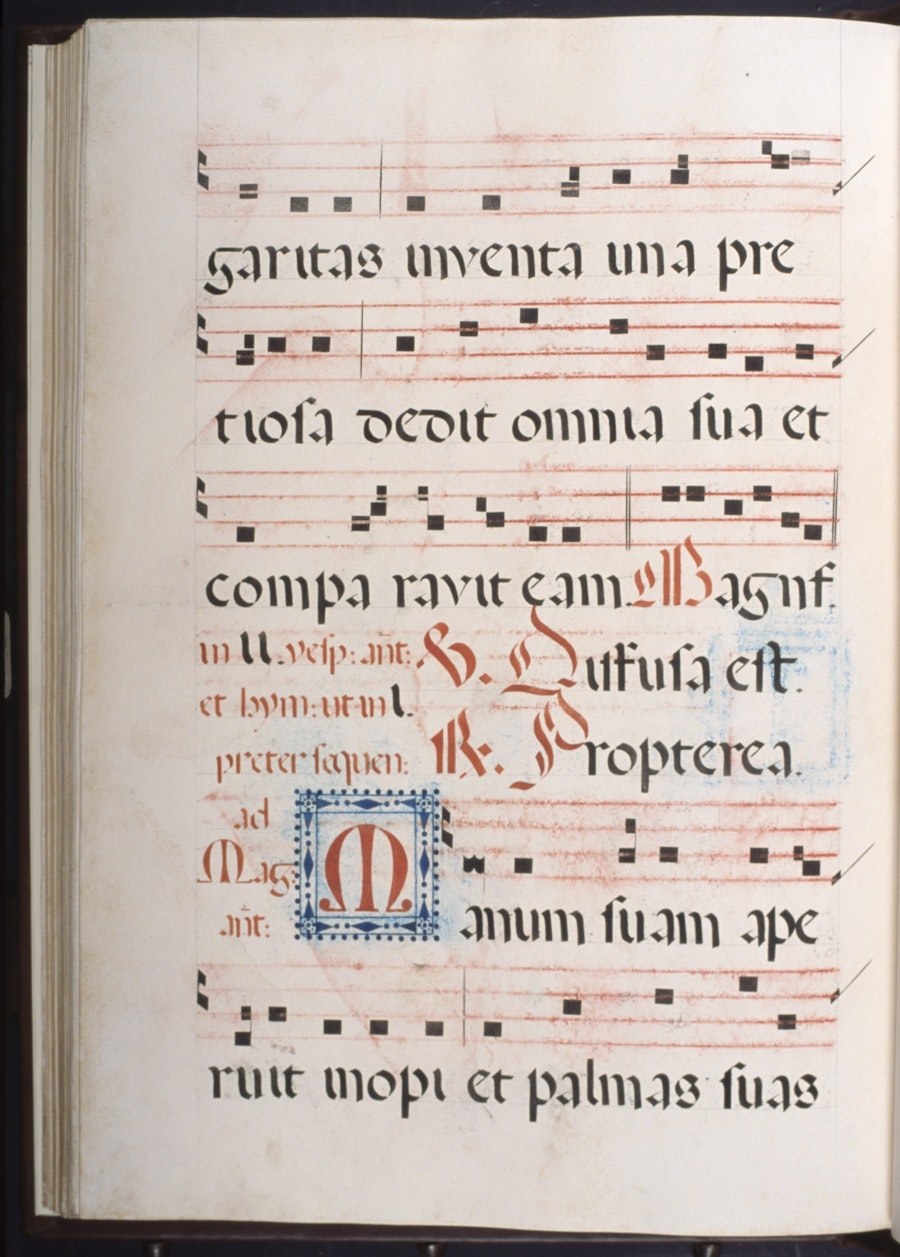 garitas inventa una pre
tiosa dedit omnia sua et
compa ravit eam Magnif.
in II. vesp: añt: V. Diffusa est.
et hym: ut in I.
preter sequen: R. Propterea.
ad
Mag:
añt: Manum suam ape
ruit inopi et palmas suas